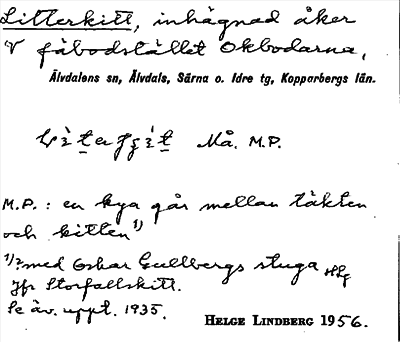 Litterkitt, inhägnad åker
V fäbodstället Okbodarna,
Älvdalens sn, Älvdals, Särna o. Idre tg, Kopparbergs län.
Må. M.P.
M.P.: en kya går mellan täkten
och kitten 1)
1) ? med Oskar Gullbergs stuga HLg
Jfr Storfallskitt.
Se äv. uppt. 1935.
HELGE LINDBERG 1956.